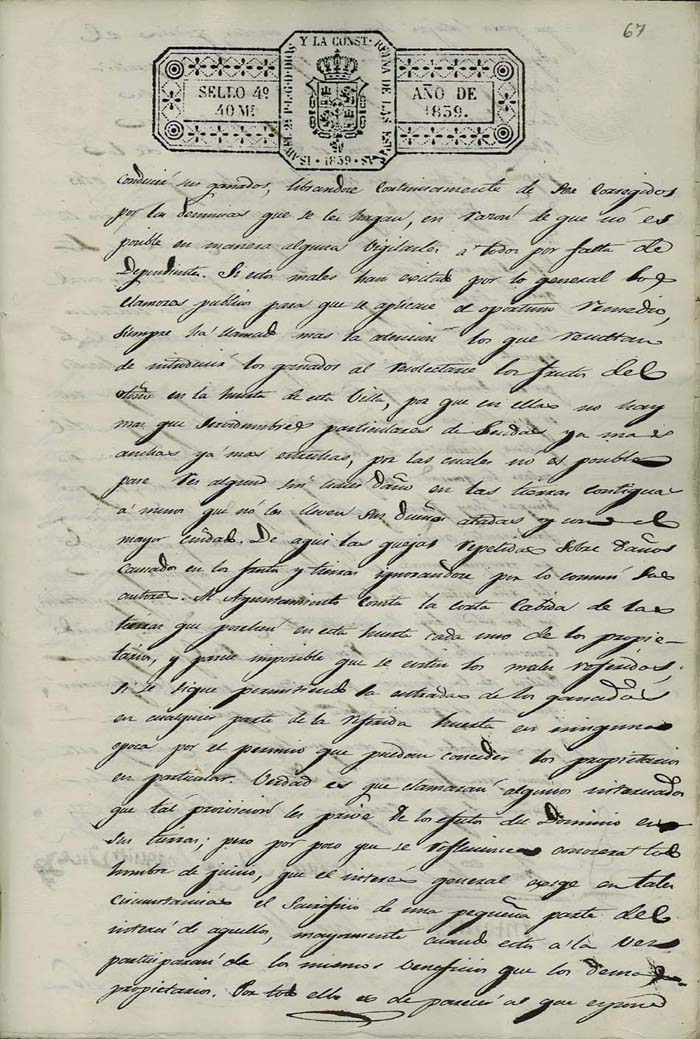 67
Y LA CONST. REYNA DE LAS ESPAS
SELLO 4º
40 Ms
AÑO DE
1839.
IS. 1839
conducir sus ganados, librandose continuamente de ser corregidos
por las denuncias que se les hagan, en razon de que nó es
posible en manera alguna vigilarles á todos por falta de
Dependientes. Si estos males han exitado por lo general los
clamores publicos para que se aplicase el oportuno remedio,
siempre há llamado mas la atencion los que resultan
de introducir los ganados al recolectarse los frutos del
otoño en la huerta de esta Villa, por que en ella no hay
mas que servidumbres particulares de sendas ya mas
anchas ya mas estrechas, por las cuales no es posible
pase res alguna sin hacer daño en las tierras contiguas
á menos que nó los lleven sus dueños atados y con el
mayor cuidado. De aqui las quejas repetidas sobre daños
causados en los frutos y tierras ignorandose por lo comun los
autores. Al Ayuntamiento consta la corta cabida de las
tierras que poseen en esta huerta cada uno de los propie-
tarios, y parece imposible que se eviten los males referidos,
si se sigue permitiendo la entrada de los ganados
en cualquier parte de la referida huerta en ninguna
epoca por el permiso que puedan conceder los propietarios
en particular. Verdad es que clamarán algunos interesados
que tal provision les prive de los efectos del Dominio en
sus tierras; pero por poco que se reflexione conocerá todo
hombre de juicio, que el interés general exige en tales
circunstancias el sacrificio de una pequeña parte del
interés de aquellos, mayormente cuando estos á la vez
participarán de los mismos beneficios que los demas
propietarios. Por todo ello es de parecer el que espone